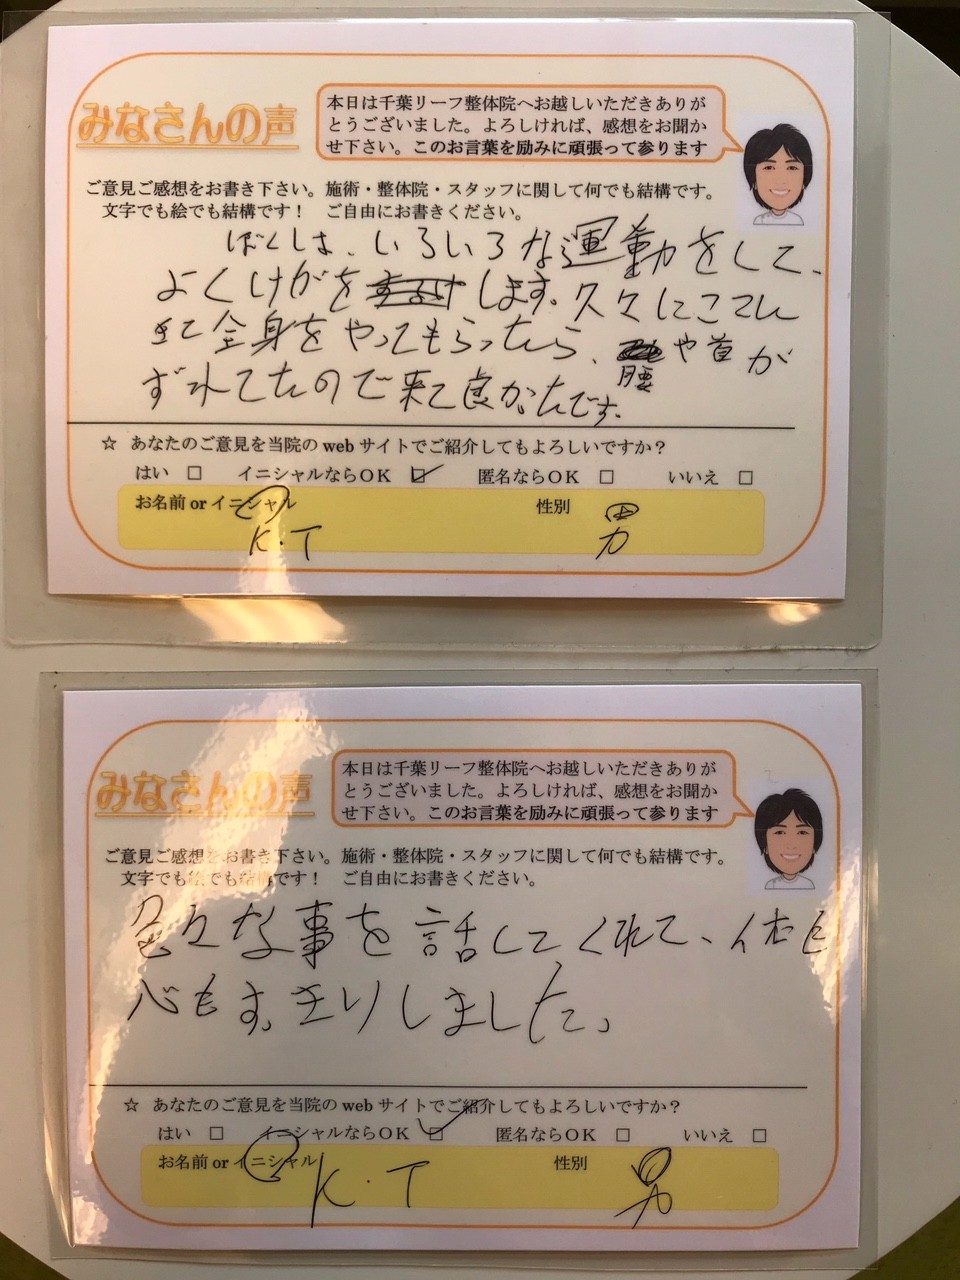 みなさんの声
本日は千葉リーフ整体院へお越しいただきありが
とうございました。よろしければ、感想をお聞か
せ下さい。このお言葉を励みに頑張って参ります
ご意見ご感想をお書き下さい。施術・整体院・スタッフに関して何でも結構です。
文字でも絵でも結構です！　ご自由にお書きください。
ぼくしは、いろいろな運動をして、
よくけがをします。久々にここてん
きて全身をやってもらったら、腰や首が
ずれてたので来て良かったです。
☆ あなたのご意見を当院の web サイトでご紹介してもよろしいですか？
はい □ イニシャルならOK ☑ 匿名ならOK □ いいえ □
お名前 or イニシャル 性別
K・T 男
みなさんの声
本日は千葉リーフ整体院へお越しいただきありが
とうございました。よろしければ、感想をお聞か
せ下さい。このお言葉を励みに頑張って参ります
ご意見ご感想をお書き下さい。施術・整体院・スタッフに関して何でも結構です。
文字でも絵でも結構です！　ご自由にお書きください。
色々な事を話してくれて、体も
心もすっきりしました。
☆ あなたのご意見を当院の web サイトでご紹介してもよろしいですか？
はい □ イニシャルならOK ☑ 匿名ならOK □ いいえ □
お名前 or イニシャル 性別
K・T 男